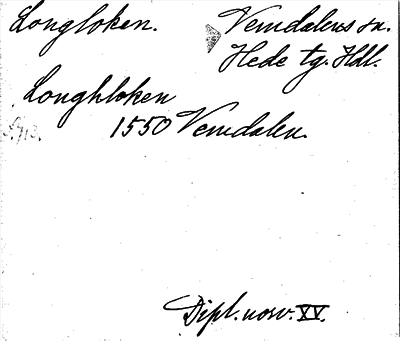 Longloken.
Vemdalens sn.
Hede tg. Hdl.
Longhloken
1550 Vemdalen.
Dipl. norv. XV.